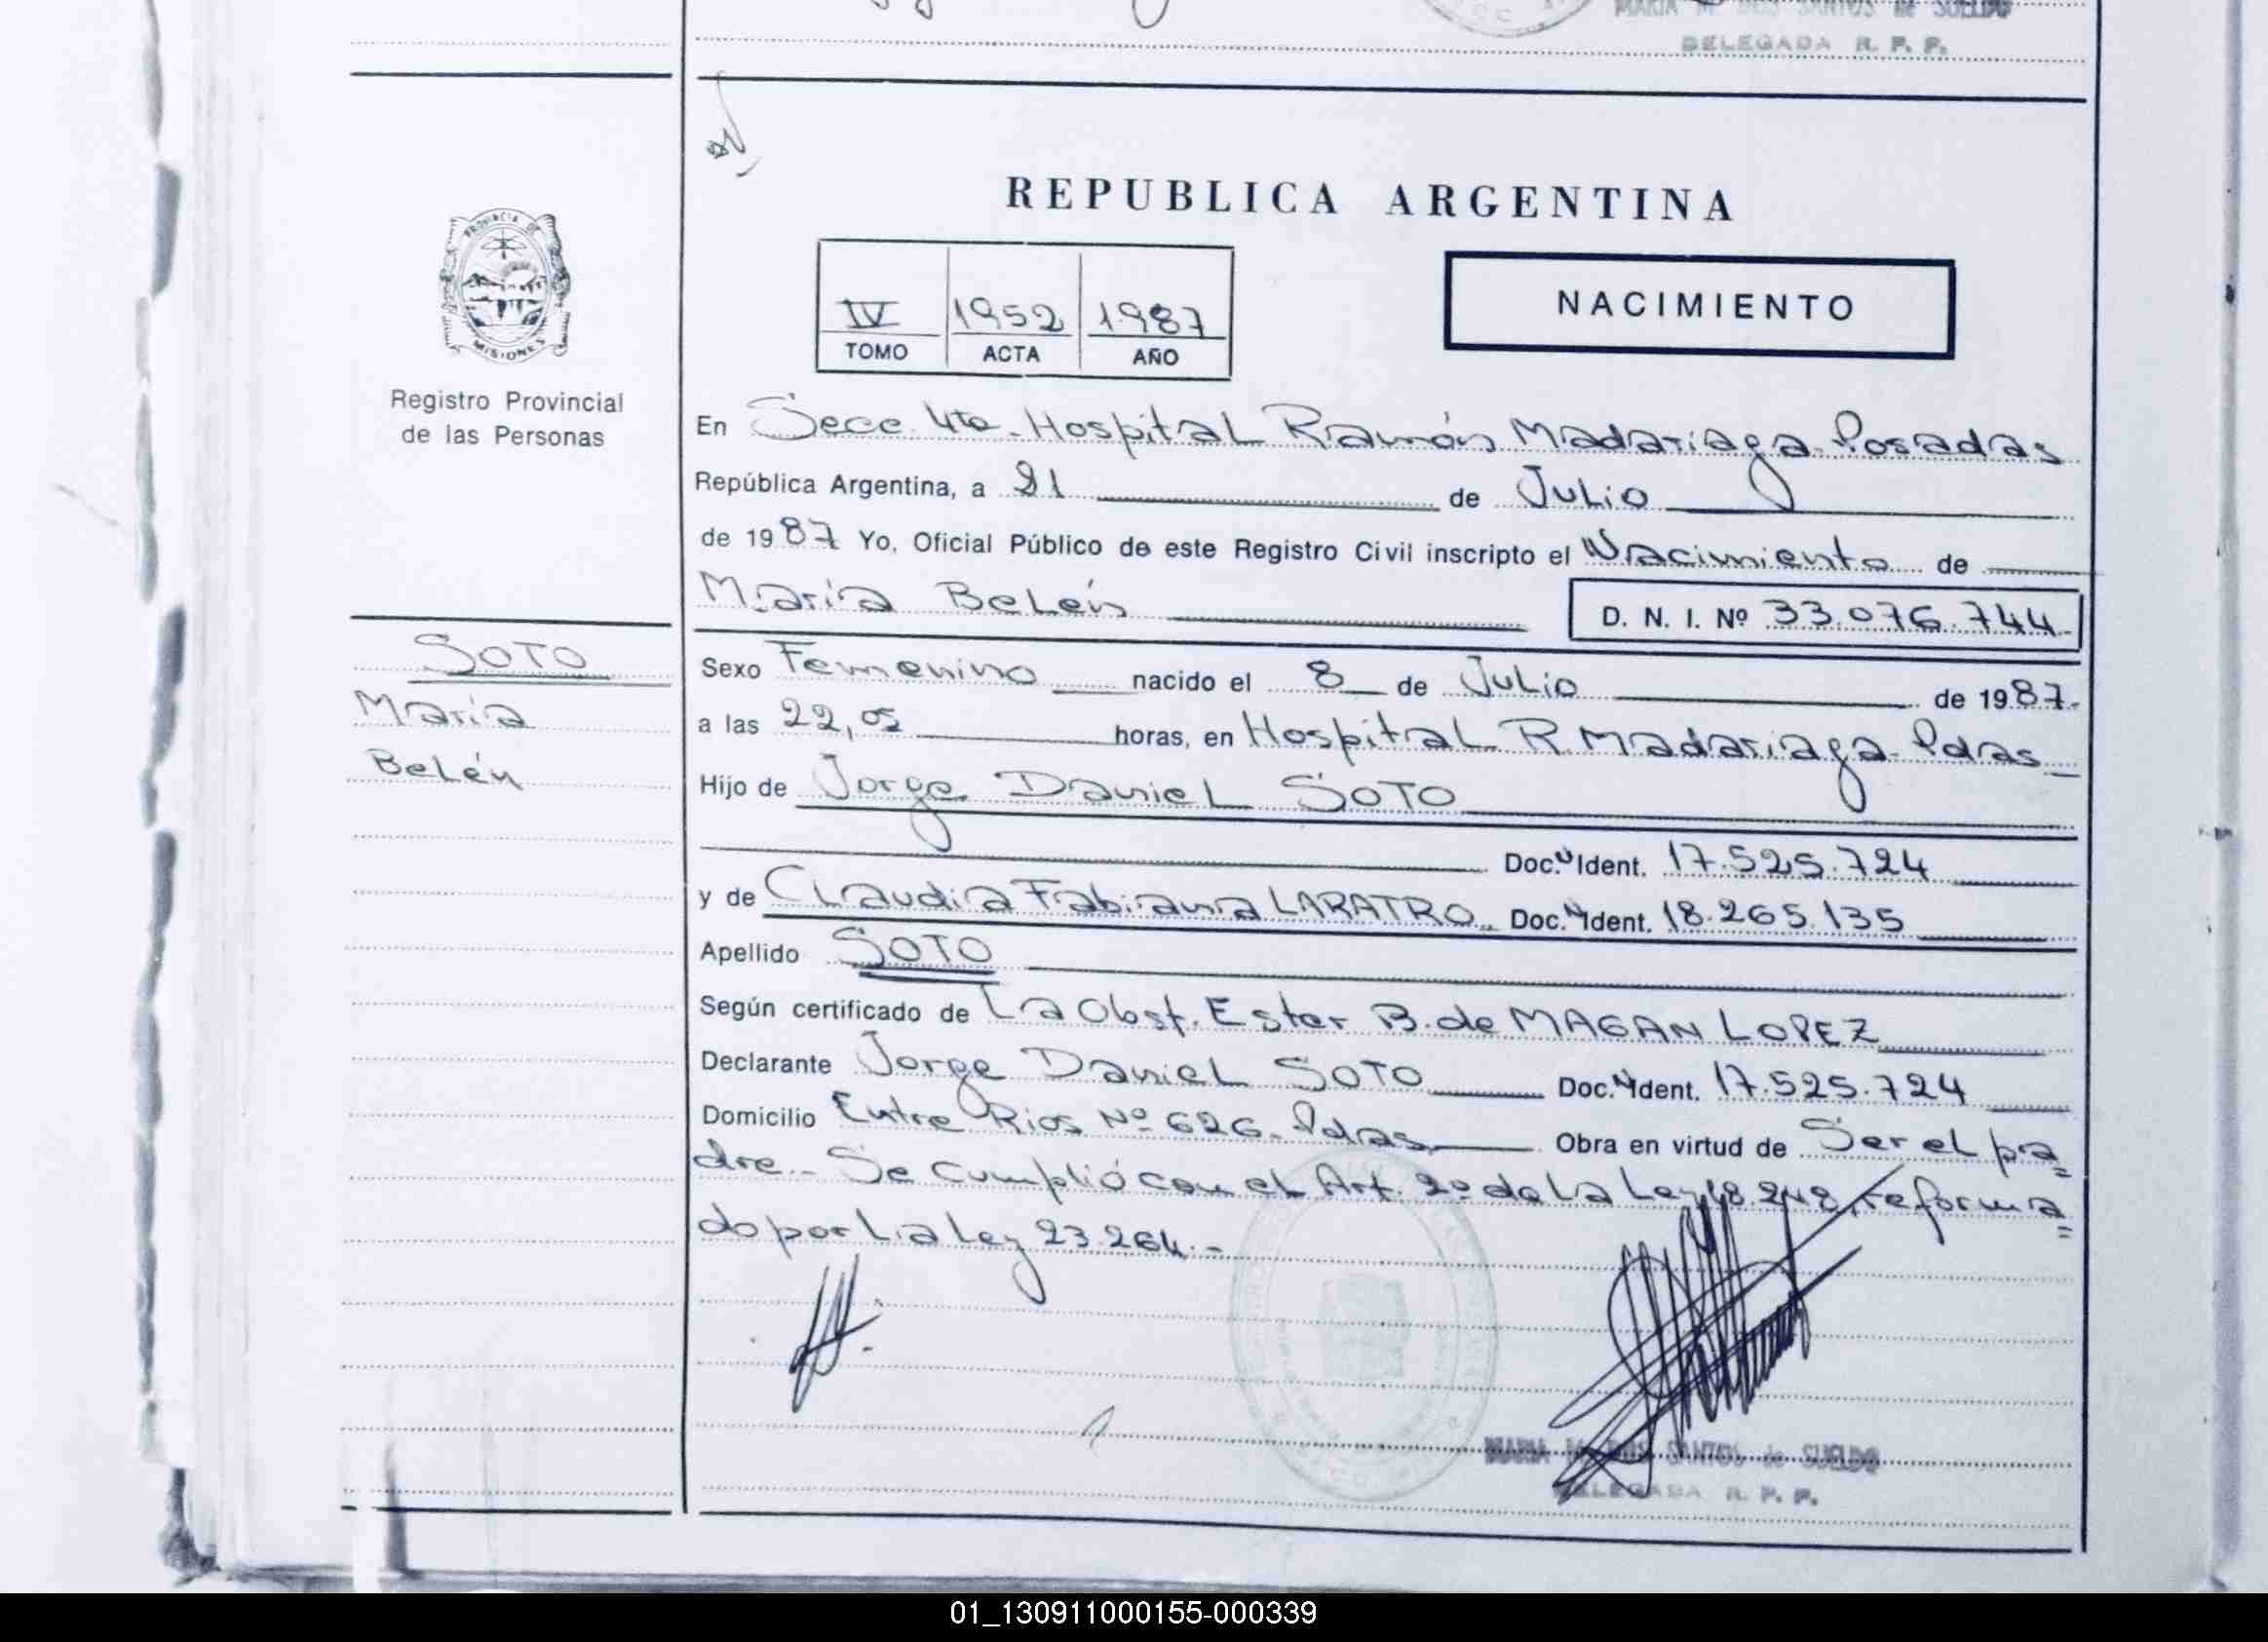 MARIA M. DOS SANTOS de SUELDO
DELEGADA R. P. P.
REPUBLICA ARGENTINA
PROVINCIA DE
MISIONES
Registro Provincial
de las Personas
IV 1952 1987
TOMO ACTA AÑO
NACIMIENTO
En Secc. 4ta. Hospital Ramón Madariaga Posadas
República Argentina, a 21 de Julio
de 1987 Yo, Oficial Público de este Registro Civil inscripto el Nacimiento de
María Belén D. N. I. Nº 33.076.744
SOTO
María
Belén
Sexo Femenino nacido el 8 de Julio de 1987.
a las 22,05 horas, en Hospital R. Madariaga Pdas
Hijo de Jorge Daniel SOTO
Doc. Ident. 17.525.724
y de Claudia Fabiana LARATRO Doc. Ident. 18.265.135
Apellido SOTO
Según certificado de La Obst. Ester B. de MAGAN LOPEZ
Declarante Jorge Daniel SOTO Doc. Ident. 17.525.724
Domicilio Entre Rios Nº 626. Pdas Obra en virtud de Ser el pa=
dre.- Se cumplió con el Art. 2º de La Ley 18.248, reforma=
do por La Ley 23.264.-
MARIA M. DOS SANTOS de SUELDO
DELEGADA R. P. P.
01_130911000155-000339